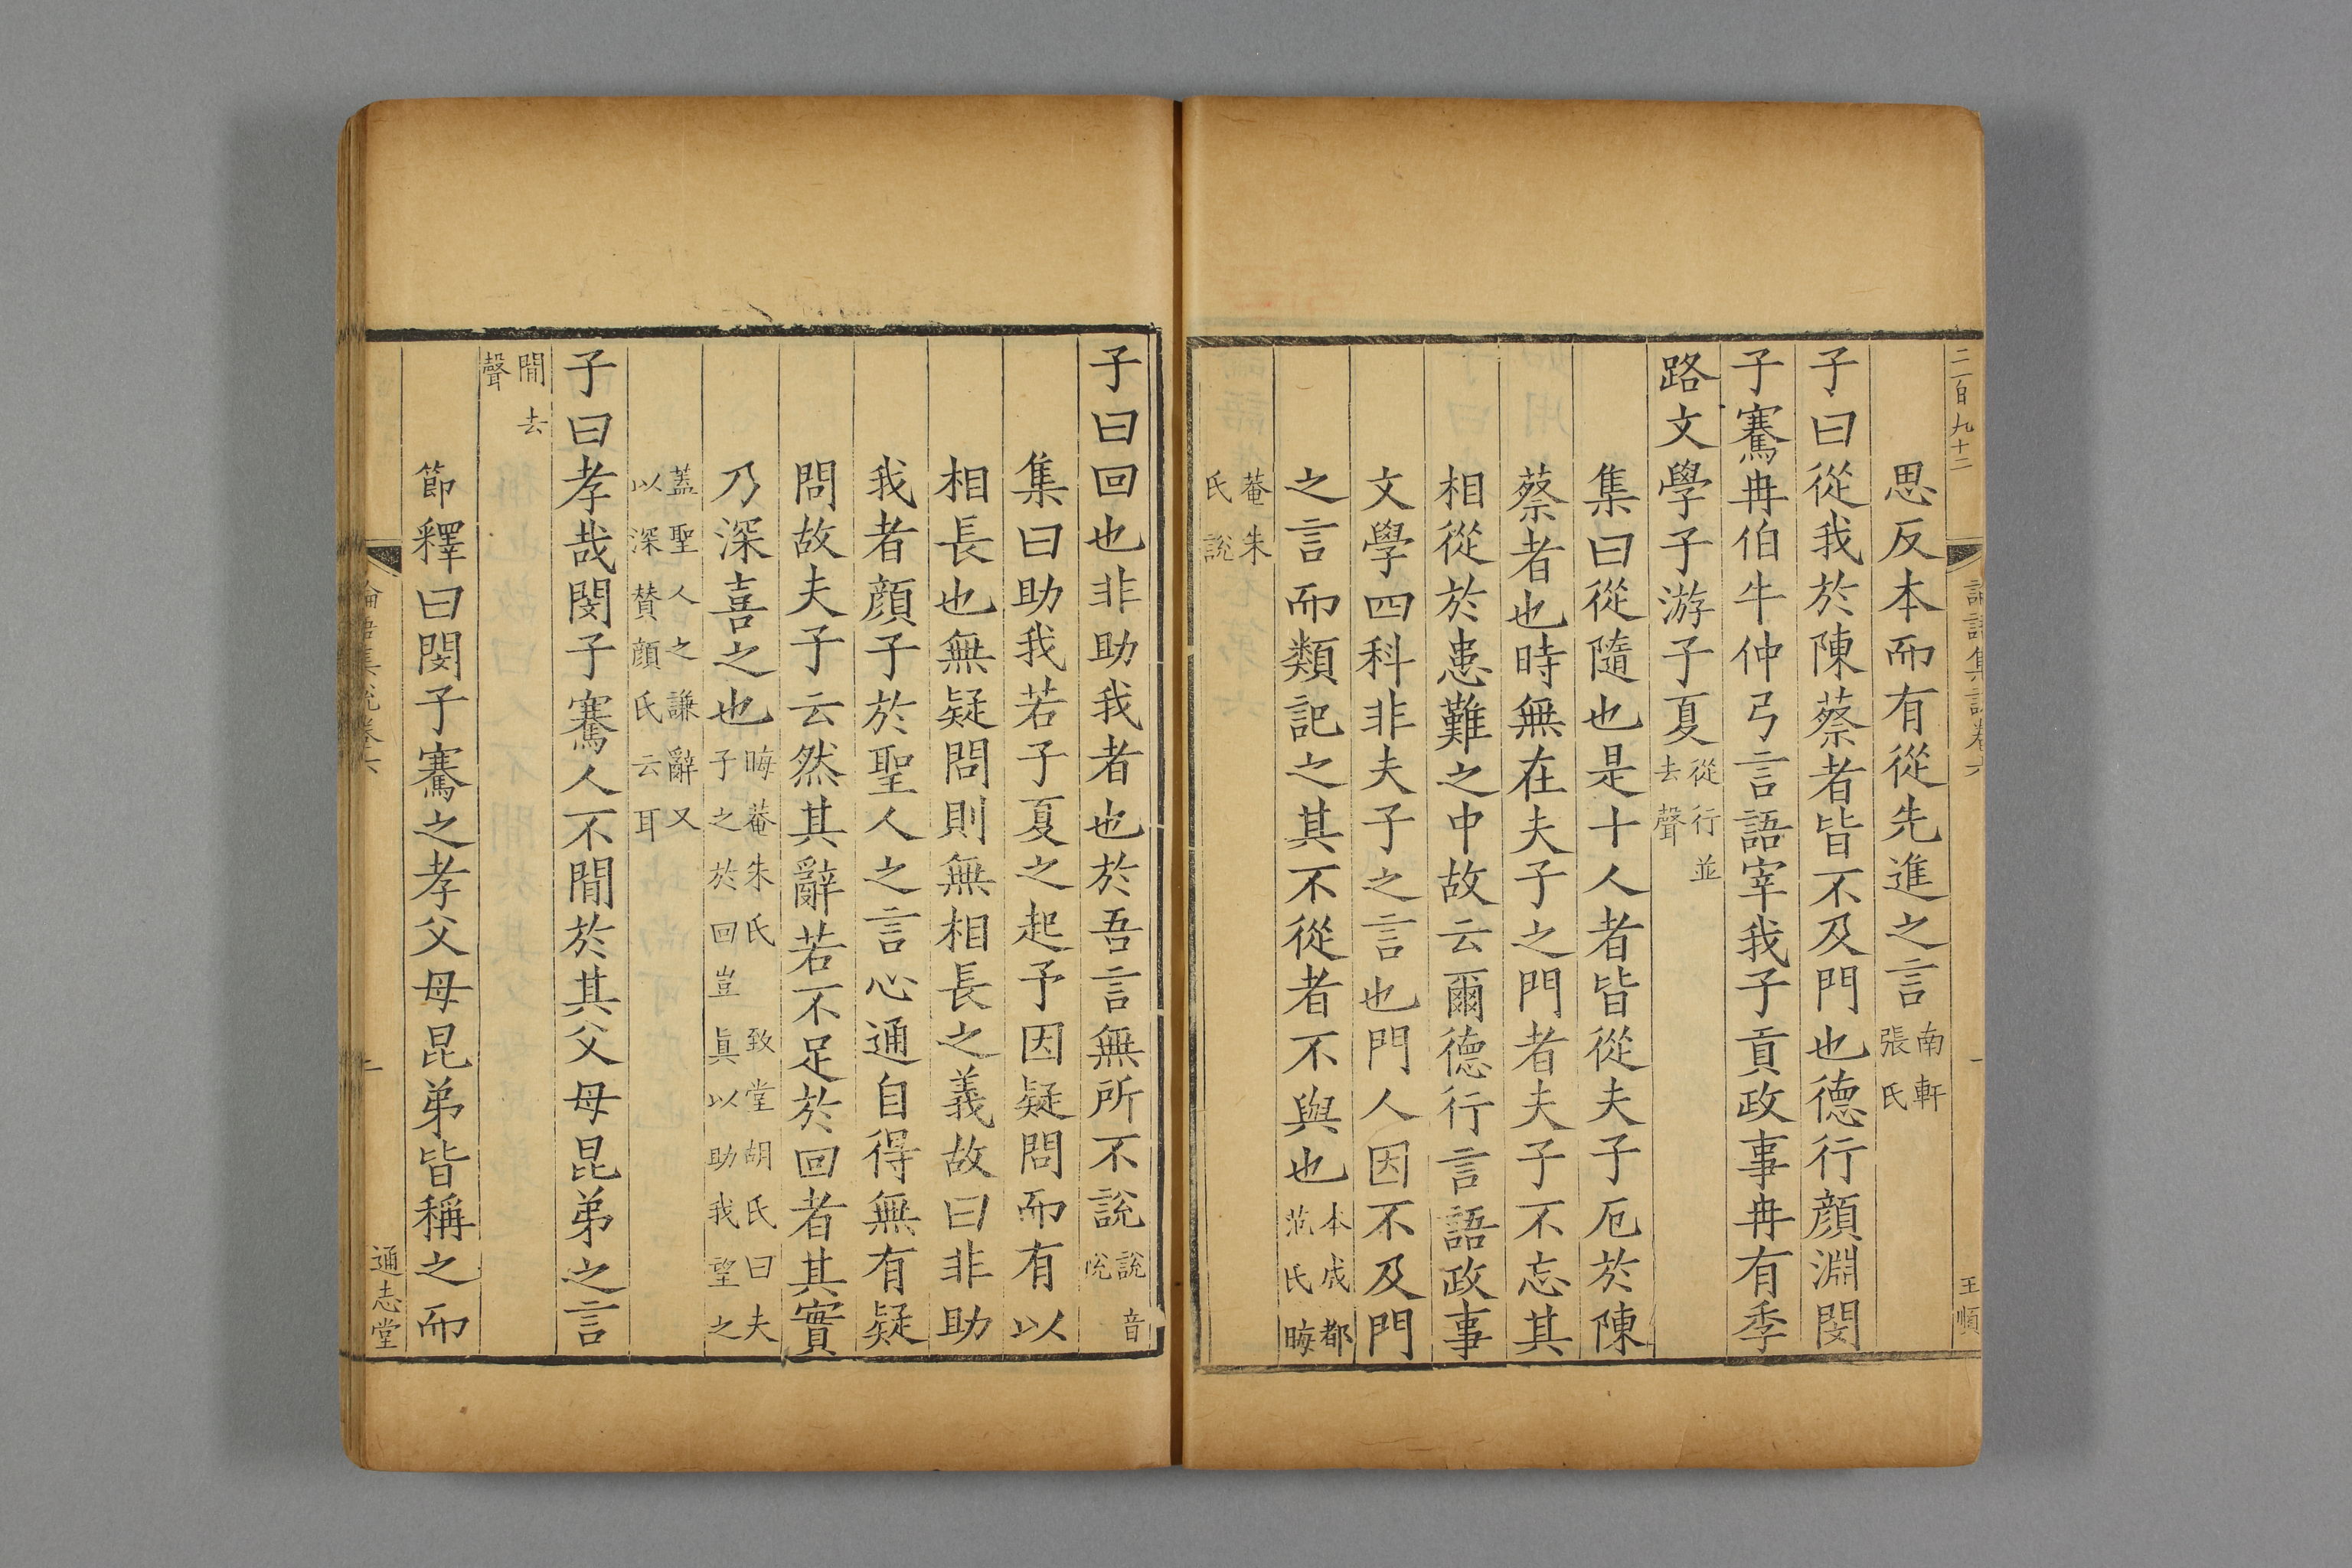 二百九十二
論語集說卷六
一
王順
思反本而有從先進之言南軒張氏
子曰從我於陳蔡者皆不及門也德行顏淵閔
子騫冉伯牛仲弓言語宰我子貢政事冉有季
路文學子游子夏從行並去聲
集曰從隨也是十人者皆從夫子厄於陳
蔡者也時無在夫子之門者夫子不忘其
相從於患難之中故云爾德行言語政事
文學四科非夫子之言也門人因不及門
之言而類記之其不從者不與也本成都范氏晦
菴朱氏說
子曰回也非助我者也於吾言無所不說說音悅
集曰助我若子夏之起予因疑問而有以
相長也無疑問則無相長之義故曰非助
我者顏子於聖人之言心通自得無有疑
問故夫子云然其辭若不足於回者其實
乃深喜之也晦菴朱氏 致堂胡氏曰夫子之於回豈眞以助我望之
蓋聖人之謙辭又以深賛顏氏云耳
子曰孝哉閔子騫人不間於其父母昆弟之言
間去聲
節釋曰閔子騫之孝父母昆弟皆稱之而
論語集說卷六
二
通志堂